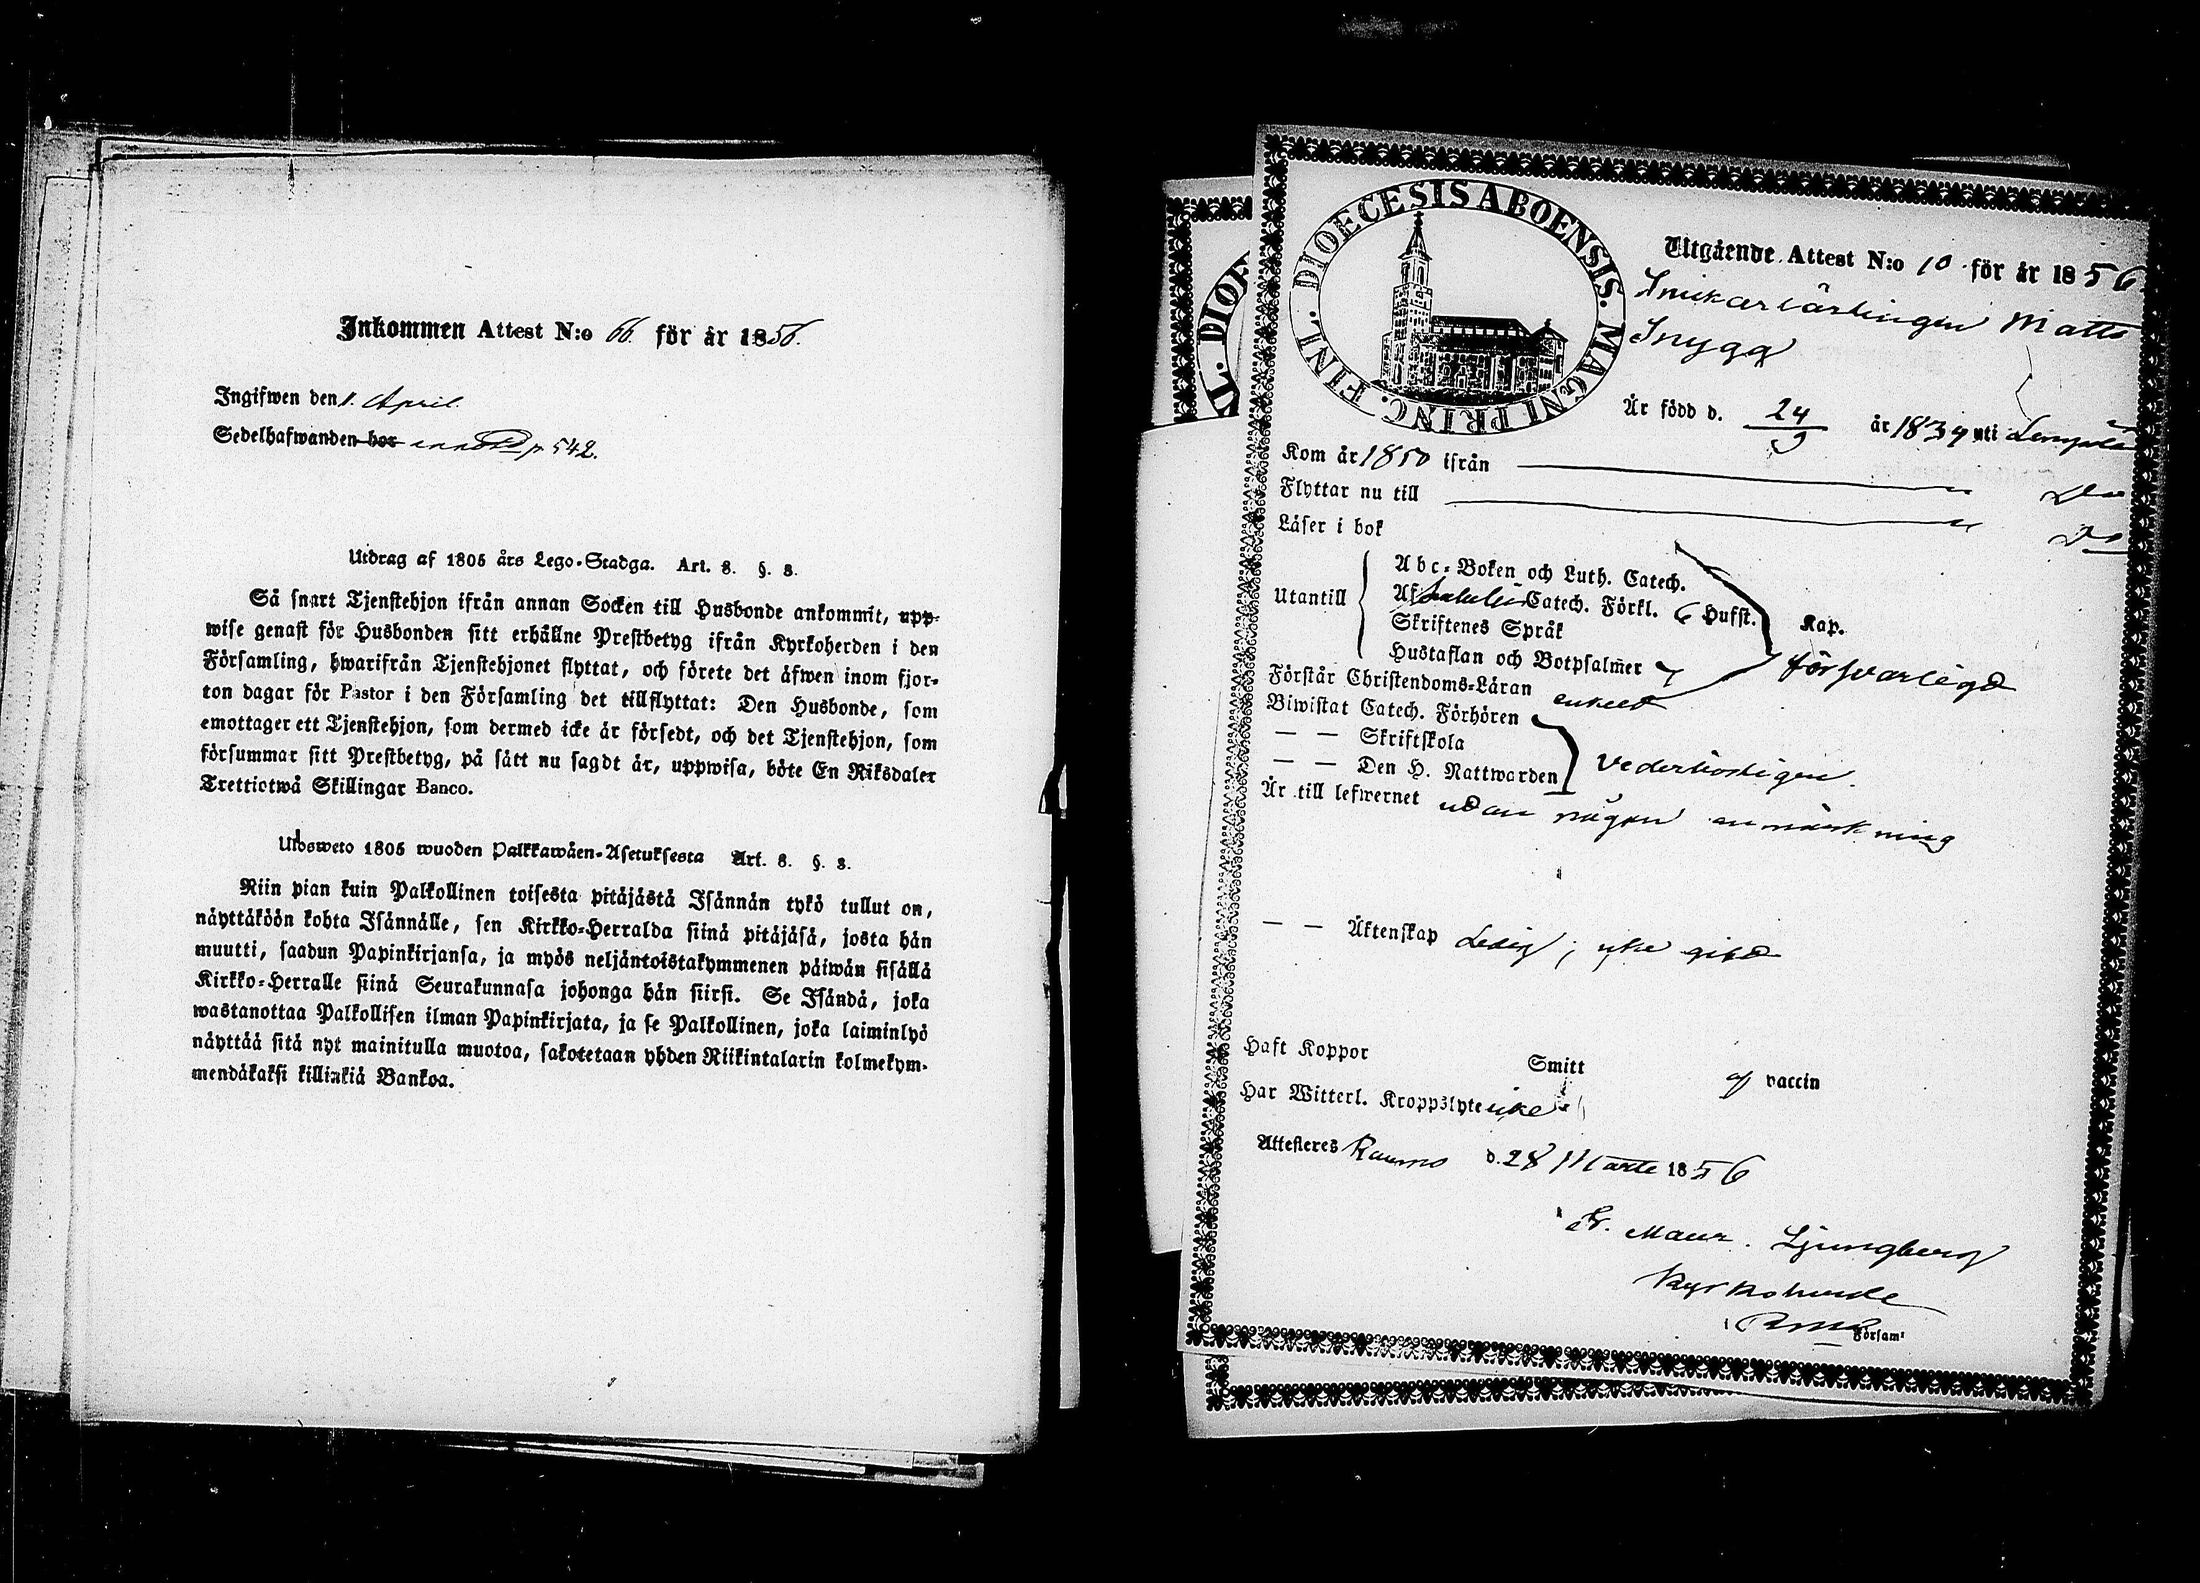 Inkommen Attest N:o 66. för år 1856.
Ingifwen den 1. April.
Sedelhafwanden bor p 542.
Utdrag af 1805 års Lego-Stadga. Art. 8. §. 8.
Så snart Tjenstehjon ifrån annan Socken till Husbonde ankommit, upp-
wise genast för Husbonden sitt erhållne Prestbetyg ifrån Kyrkoherden i den
Församling, hwarifrån Tjenstehjonet flyttat, och förete det äfwen inom fjor-
ton dagar för Pastor i den Församling det tillflyttat: Den Husbonde, som
emottager ett Tjenstehjon, som dermed icke är försedt, och det Tjenstehjon, som
försummar sitt Prestbetyg, på sätt nu sagdt är, uppwisa, böte En Riksdaler
Trettiotwå Skillingar Banco.
Ulosweto 1805 wuoden Palkkawäen-Asetuksesta Art. 8. §. 8.
Niin pian kuin Palkollinen toisesta pitäjästä Isännän tykö tullut on,
näyttäköön kohta Isännälle, sen Kirkko-Herralda siinä pitäjäsä, josta hän
muutti, saadun Papinkirjansa, ja myös neljäntoistakymmenen päiwän sisällä
Kirkko-Herralle siinä Seurakunnasa johonga hän siirsi. Se Isändä, joka
wastanottaa Palkollisen ilman Papinkirjata, ja se Palkollinen, joka laiminlyö
näyttää sitä nyt mainitulla muotoa, sakotetaan yhden Riikintalarin kolmekym-
mendäkaksi killinkiä Bankoa.
DIOECESIS ABOENSIS. MAGNI PRINC. FINL.
L. DIOE
Utgående Attest N:o 10 för år 1856
Snickarlärlingen Matts
Snygg
Är född d. 24/9 år 1834 uti Lempälä
Kom år 1850 ifrån Do
Flyttar nu till Do
Läser i bok
Utantill
Abc-Boken och Luth. Catech.
Af Catech. Förkl. 6 Hufst. Kap.
Skriftenes Språk
Hustaflan och Botpsalmer
försvarligt
Förstår Christendoms-Läran enkelt
Biwistat Catech. Förhören
— — Skriftskola
— — Den H. Nattwarden
vederbörligen.
Är till lefwernet utan någon anmärkning
— — Äktenskap Ledig; icke gift
Haft Koppor Smitt vaccin
Har Witterl. Kroppslyte icke
Attesteres Raumo d. 28 Marts 1856
Fr. Maur. Ljungberg
Kyrkoherde
Församl